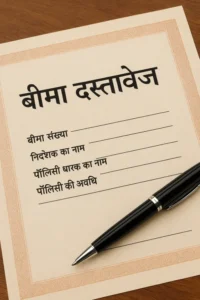 बीमा दस्तावेज
बीमा संख्या
निदेशक का नाम
पॉलिसी धारक का नाम
पॉलिसी की अवधि